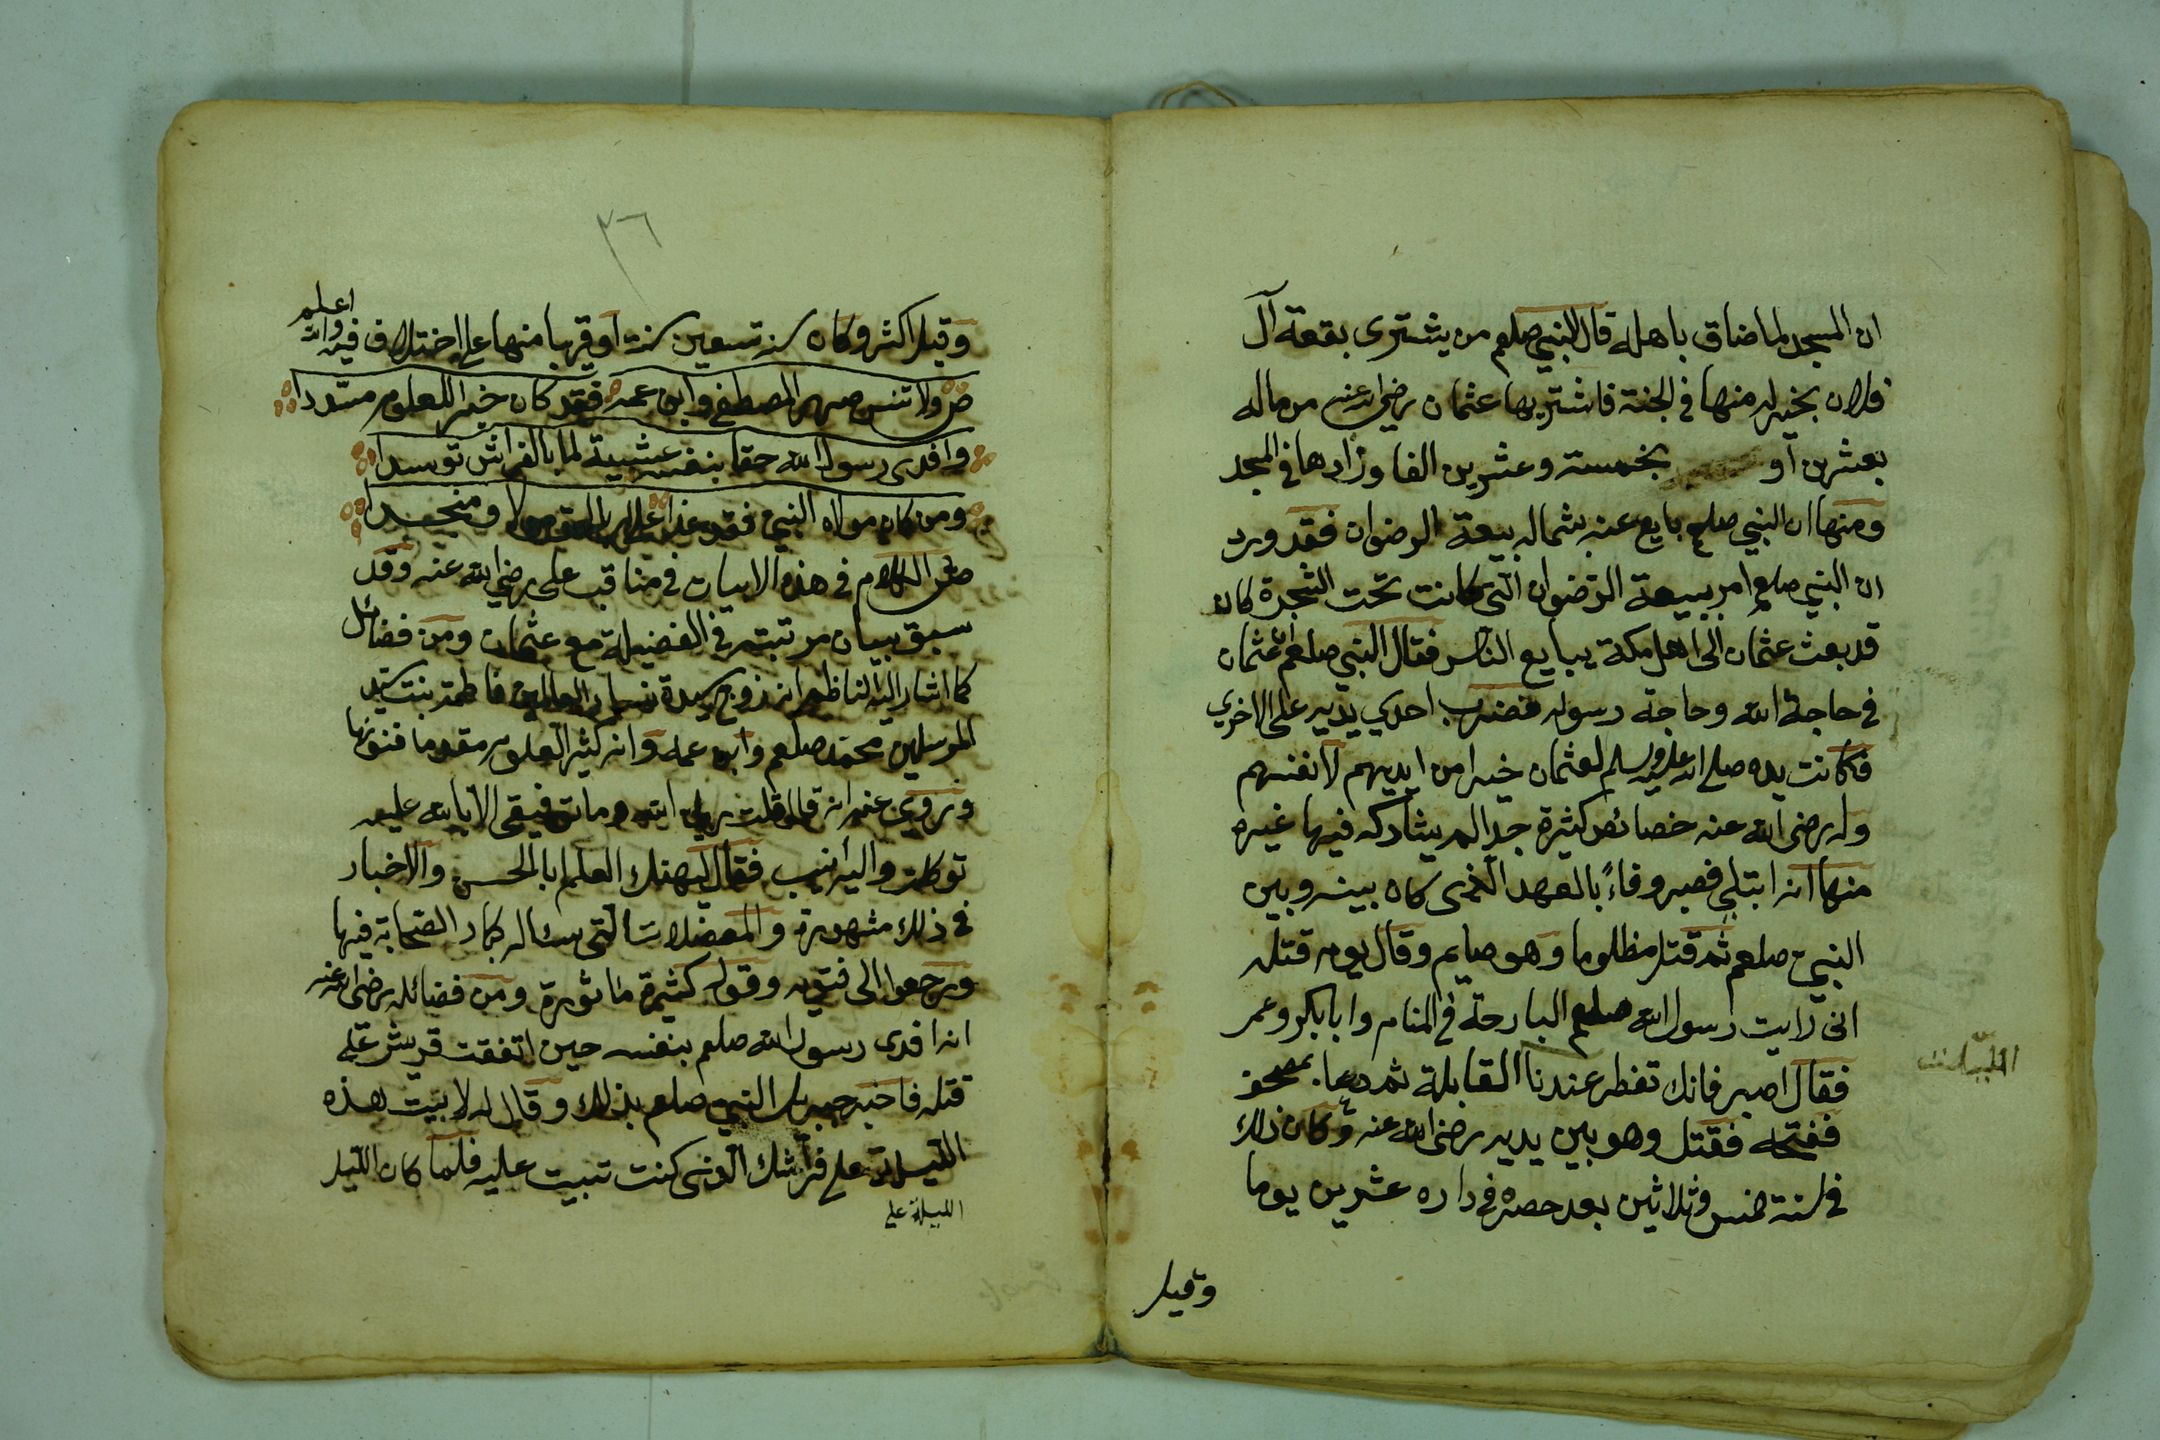 ان المسجد لما ضاق باهله قال النبي صلعم من يشترى بقعة آل
فلان بخير له منها فى الجنة فاشتريها عثمان رضى الله عنه من ماله
بعشرين او بخمسة وعشرين الفا وزادها فى المسجد
ومنها ان النبي صلعم بايع عنه بشماله بيعة الرضوان فقد ورد
ان النبي صلعم امر ببيعة الرضوان التى كانت تحت الشجرة كان
قد بعث عثمان الى اهل مكة يبايع الناس فقال النبي صلعم ان عثمان
فى حاجة الله وحاجة رسوله فضرب احدي يديه على الاخري
فكانت يده صلى الله عليه وسلم لعثمان خيرا من ايديهم لانفسهم
وله رضى الله عنه خصائص كثيرة جدا لم يشاركه فيها غيره
منها انه ابتلي فصبر وفاءً بالعهد الذى كان بينه وبين
النبي صلعم ثم قتل مظلوما وهو صايم وقال يوم قتله
انى رايت رسول الله صلعم البارحة فى المنام وابا بكر وعمر
فقال اصبر فانك تفطر عندنا القابلة ثم دعا بمصحف
ففتحه فقتل وهو بين يديه رضى الله عنه وكان ذلك
فى سنة خمس وثلاثين بعد حصره فى داره عشرين يوما
وقيل
٣٦
وقيل اكثر وكان سنه تسعين سنة او قريبا منها على اختلاف فيه والله اعلم
ص ولا تنس صهر المصطفى وابن عمه فقد كان خيرا للعلوم مسددا
وافدى رسول الله حقا بنفسه عشية لما بالفراش توسدا
ومن كان مولاه النبي فقد غدا علي له بالحق مولا ومنجدا
ش الكلام فى هذه الابيات فى مناقب على رضى الله عنه وقد
سبق بيان مرتبته فى الفضيلة مع عثمان ومن فضائل
كما اشار اليه الناظم انه زوج سيدة نساء العالمين فاطمة بنت سيد
المرسلين محمد صلعم وابن عمه وانه كثير العلوم مقدما فنونها
وروي عنه انه قال قلت ربى الله وما توفيقى الا بالله عليه
توكلت واليه أنيب فقال ليهنك العلم ابا الحسن والاخبار
فى ذلك مشهورة والمعضلات التى سئاله كبار الصحابة فيها
ورجعوا الى فتويه وقوله كثيرة ماثورة ومن فضائله رضى الله عنه
انه افدى رسول الله صلعم بنفسه حين اتفقت قريش على
قتله فاخبر جبريل النبي صلعم بذلك وقال له لا تبيت هذه
الليلة على فراشك الذى كنت تبيت عليه فلما كان الليل
الليلة على